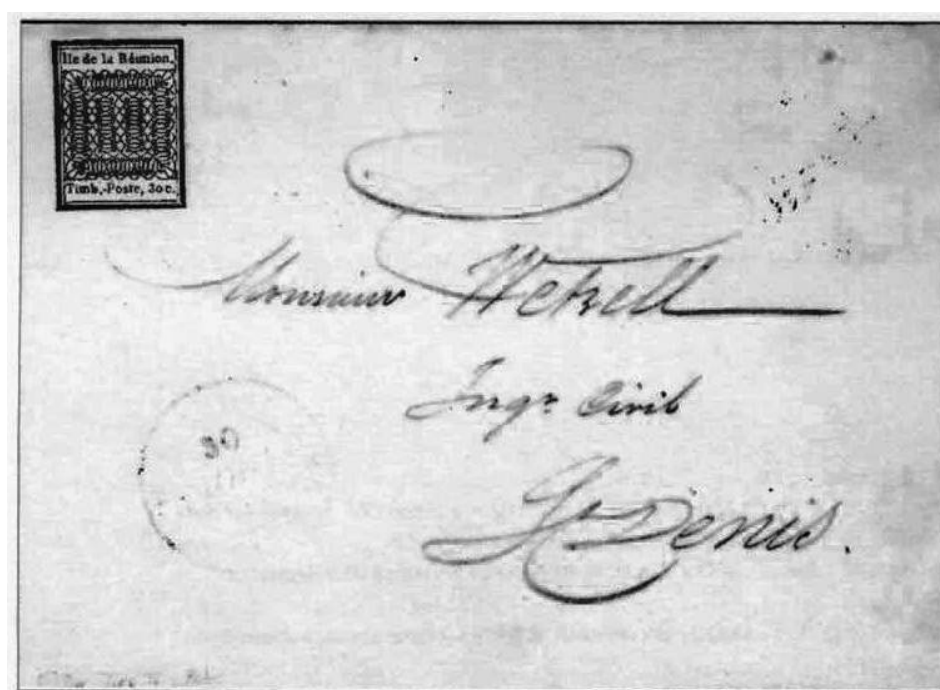 Ile de la Réunion.
Timb.-Poste, 30 c.
Monsieur Wetzell
Ingr. Civil
St Denis.